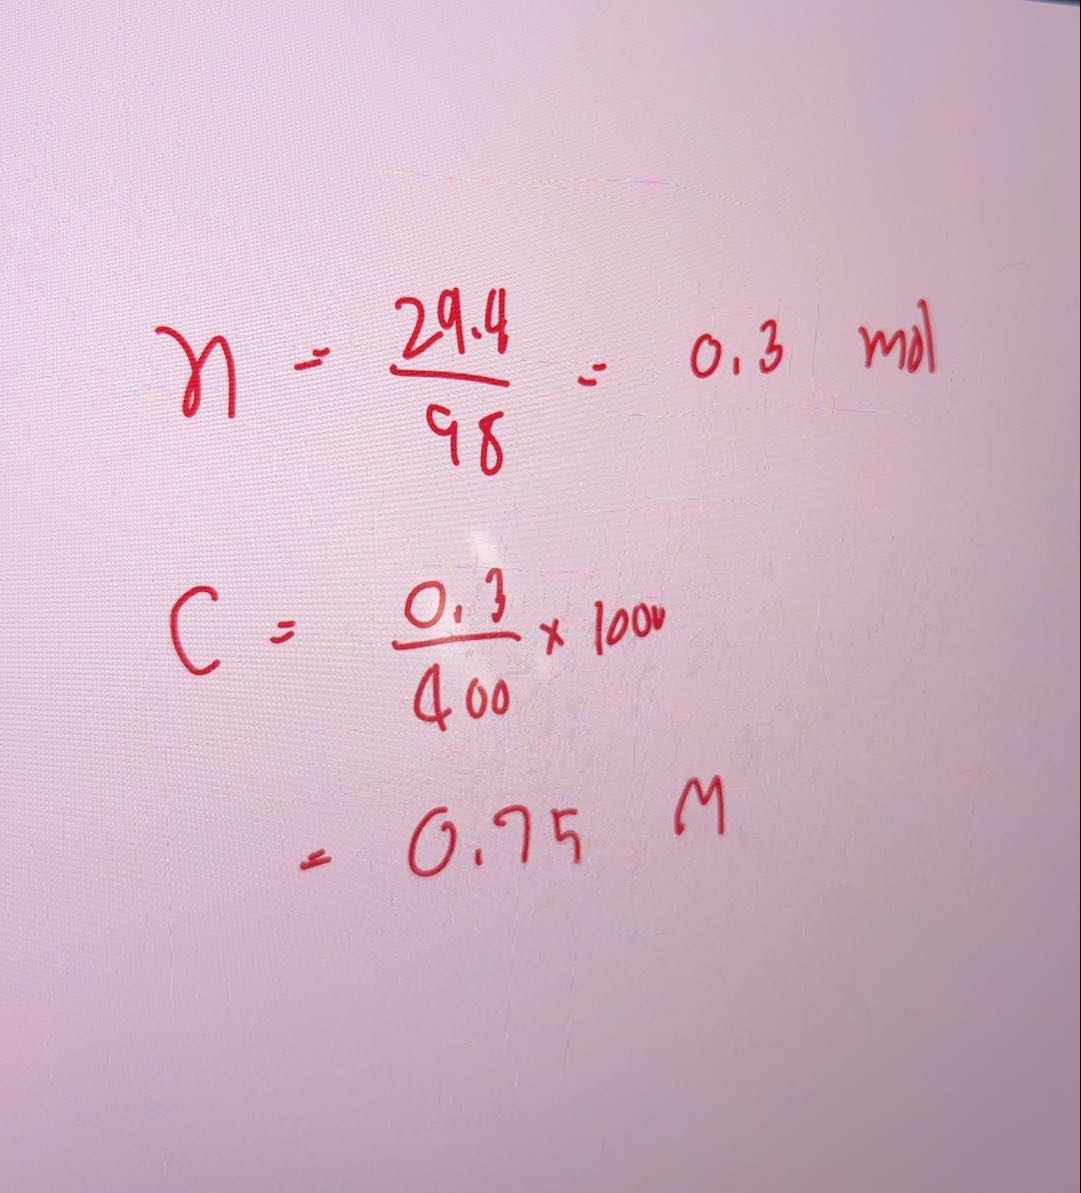 n = 29.4/98 = 0.3 mol
C = 0.3/400 x 1000
= 0.75 M